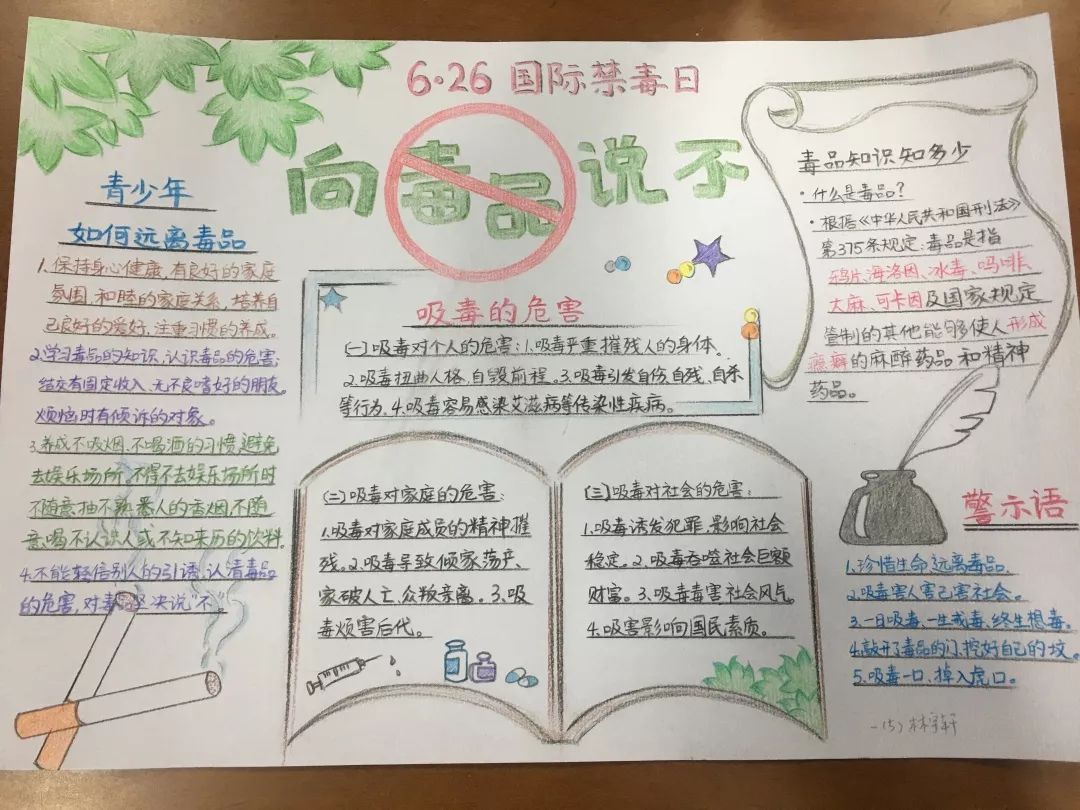 6·26 国际禁毒日
向毒品说不
青少年
如何远离毒品
1.保持身心健康,有良好的家庭
氛围,和睦的家庭关系,培养自
己良好的爱好,注重习惯的养成。
2.学习毒品的知识,认识毒品的危害,
结交有固定收入、无不良嗜好的朋友。
烦恼时有倾诉的对象。
3.养成不吸烟、不喝酒的习惯,避免
去娱乐场所,不得不去娱乐场所时
不随意抽不熟悉人的香烟,不随
意喝不认识人或不知来历的饮料。
4.不能轻信别人的引诱、认清毒品
的危害,对毒品坚决说“不”。
吸毒的危害
(一)吸毒对个人的危害:1.吸毒严重摧残人的身体。
2.吸毒扭曲人格,自毁前程。3.吸毒引发自伤、自残、自杀
等行为。4.吸毒容易感染艾滋病等传染性疾病。
(二)吸毒对家庭的危害:
1.吸毒对家庭成员的精神摧
残。2.吸毒导致倾家荡产、
家破人亡,众叛亲离。3.吸
毒烦害后代。
(三)吸毒对社会的危害:
1.吸毒诱发犯罪,影响社会
稳定。2.吸毒吞噬社会巨额
财富。3.吸毒毒害社会风气。
4.吸害影响国民素质。
毒品知识知多少
·什么是毒品?
·根据《中华人民共和国刑法》
第375条规定:毒品是指
鸦片、海洛因、冰毒、吗啡、
大麻、可卡因及国家规定
管制的其他能够使人形成
瘾癖的麻醉药品和精神
药品。
警示语
1.珍惜生命,远离毒品。
2.吸毒害人害己害社会。
3.一日吸毒,一生戒毒,终生想毒。
4.敲开了毒品的门,挖好自己的坟。
5.吸毒一口、掉入虎口。
一(5) 林宇轩